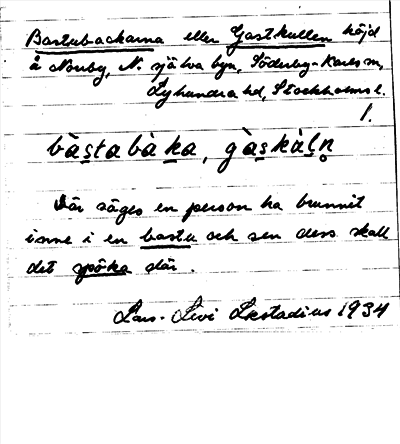 Bastubackarna eller Gastkullen höjd
å Norrby, N. själva byn, Söderby-Karls sn,
Lyhundra hd, Stockholms l.
1.
bàs̱tabàḵa, gàs̱kàḻn̥
Där säges en person ha brunnit
inne i en bastu och sen dess skall
det spöka där.
Lars-Levi Læstadius 1934